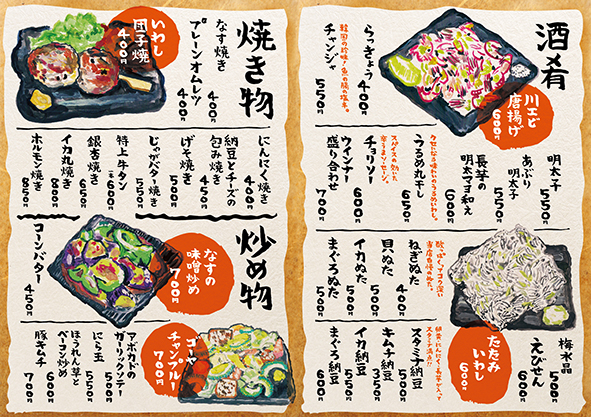 酒肴
川エビ唐揚げ
600円
らっきょう 400円
韓国の珍味!魚の腸の塩辛。
チャンジャ 550円
明太子 550円
あぶり明太子 550円
長芋の明太マヨ和え 600円
うるめ丸干し 650円
チョリソー
ウインナー盛り合わせ 700円
ねぎぬた 400円
貝ぬた 500円
イカぬた 500円
まぐろぬた 500円
たたみいわし
600円
梅水晶 500円
えびせん
スタミナ納豆
キムチ納豆 350円
イカ納豆 500円
まぐろ納豆 500円
焼き物
いわし団子焼
400円
なす焼き 400円
プレーンオムレツ 400円
にんにく焼き 400円
納豆とチーズの包み焼き 450円
げそ焼き 500円
じゃがバター焼き 550円
特上牛タン
銀杏焼き 600円
イカ丸焼き 650円
ホルモン焼き 800円
炒め物
なすの味噌炒め
700円
コーンバター 450円
ゴーヤチャンプルー
700円
アボカドのガーリックソテー 550円
にら玉 550円
ほうれん草とベーコン炒め 600円
豚キムチ 700円